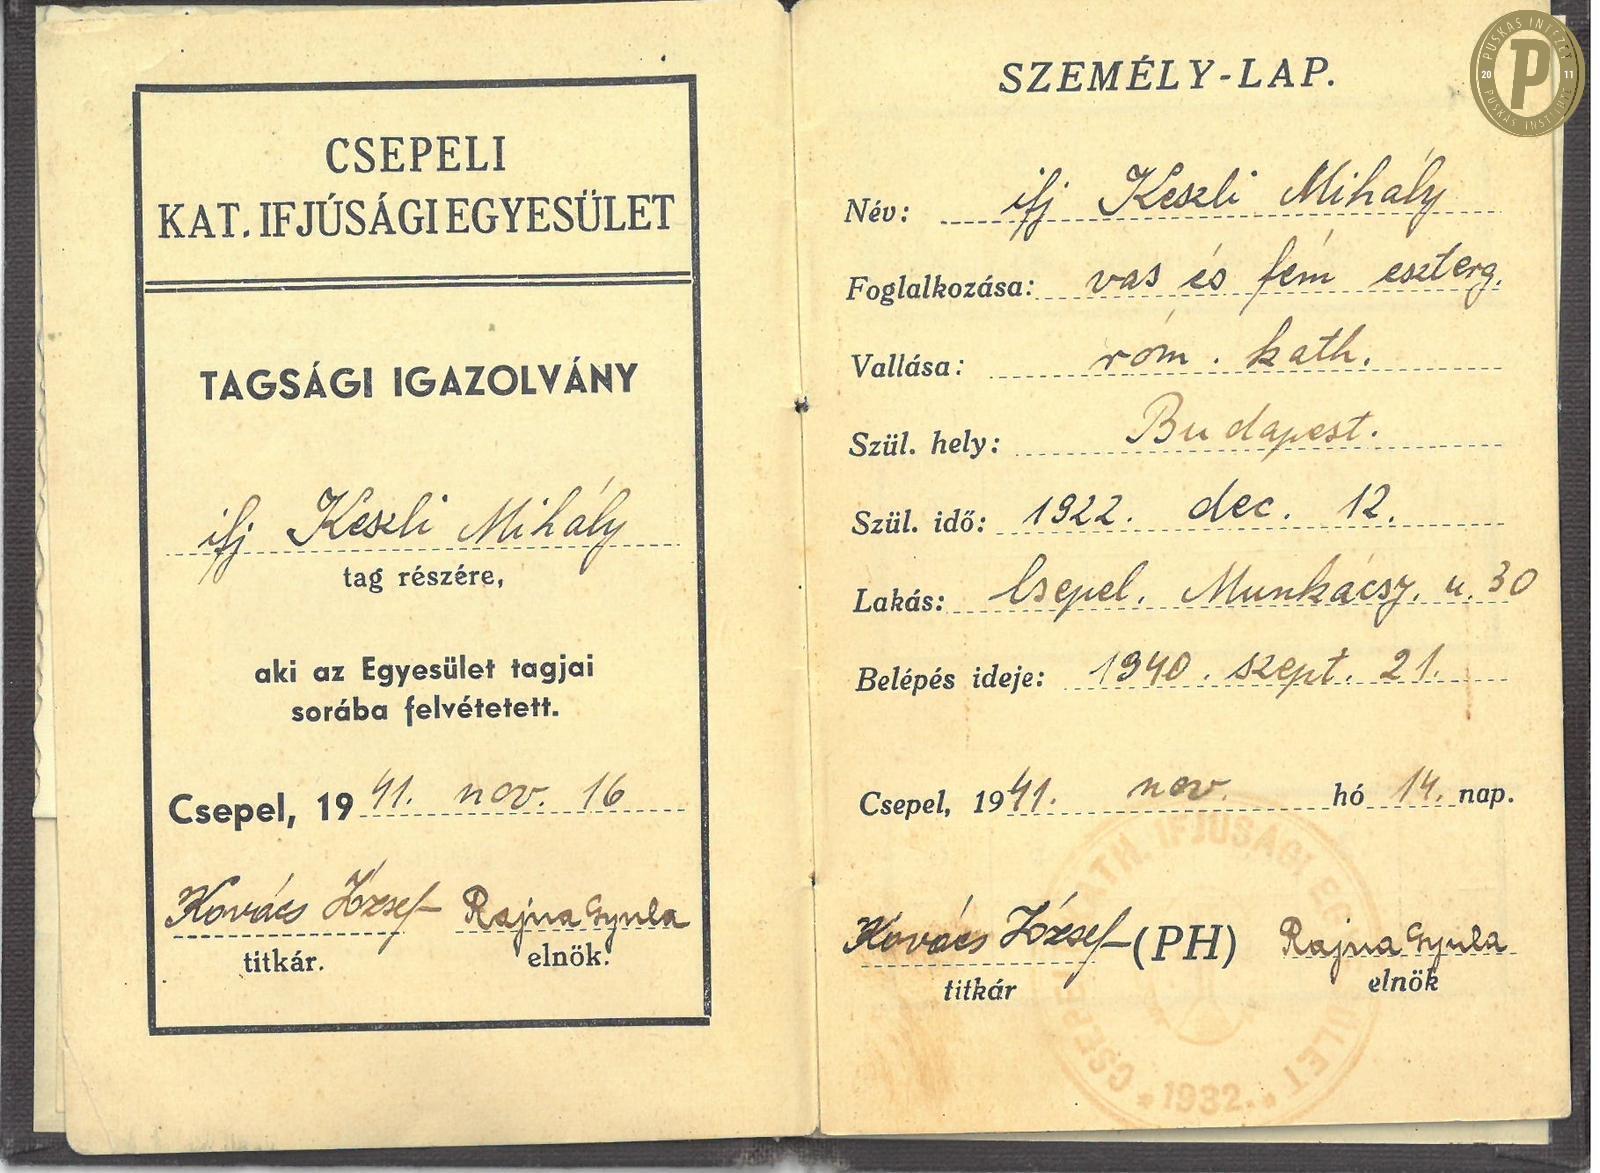 CSEPELI
KAT. IFJÚSÁGI EGYESÜLET
TAGSÁGI IGAZOLVÁNY
ifj Keszli Mihály
tag részére,
aki az Egyesület tagjai
sorába felvétetett.
Csepel, 1941. nov. 16
Kovács József Rajna Gyula
titkár. elnök.
PUSKÁS INTÉZET
20 P 11
PUSKÁS INSTITUTE
SZEMÉLY-LAP.
Név: ifj Keszli Mihály
Foglalkozása: vas és fém eszterg.
Vallása: róm. kath.
Szül. hely: Budapest.
Szül. idő: 1922. dec. 12.
Lakás: Csepel. Munkácsy. u. 30
Belépés ideje: 1940. szept. 21.
Csepel, 1941. nov. hó 14. nap.
Kovács József (PH) Rajna Gyula
titkár elnök
CSEPELI KATH. IFJÚSÁGI EGYESÜLET
1932.